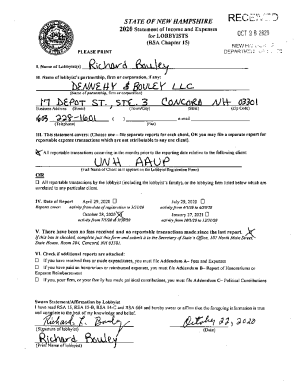 STATE OF NEW HAMPSHIRE
2020 Statement of Income and Expenses
for LOBBYISTS
(RSA Chapter 15)
RECEIVED
OCT 26 2020
NEW HAMPSHIRE
DEPARTMENT OF STATE
PLEASE PRINT
I. Name of Lobbyist(s) Richard Bouley
II. Name of lobbyist's partnership, firm or corporation, if any:
DENNEHY & BOULEY LLC
(Name of partnership, firm or corporation)
17 DEPOT ST., STE. 3 CONCORD NH 03301
Business Address (Street) (Town/City) (State) (Zip Code)
603 228-1601 ( ) e-mail
(Telephone) (Fax)
III. This statement covers: (Choose one – file separate reports for each client, OR you may file a separate report for
reportable expense transactions which are not attributable to any one client).
All reportable transactions occurring in the months prior to the reporting date relative to the following client:
UNH AAUP
(Full Name of Client as it appears on the Lobbyist Registration Form)
OR
All reportable transactions by the lobbyist (including the lobbyist's family), or the lobbying firm listed below which are
unrelated to any particular client.
IV. Date of Report April 29, 2020 July 29, 2020
Reports cover: activity from date of registration to 3/31/20 activity from 4/1/20 to 6/30/20
October 28, 2020 X January 27, 2021
activity from 7/1/20 to 9/30/20 activity from 10/1/20 to 12/31/20
V. There have been no fees received and no reportable transactions made since the last report. X
If this box is checked, complete just this form and submit it to the Secretary of State's Office, 107 North Main Street,
State House, Room 204, Concord, NH 03301.
VI. Check if additional reports are attached:
If you have received fees or made expenditures, you must file Addendum A– Fees and Expenses
If you have paid an honorarium or reimbursed expenses, you must file Addendum B– Report of Honorariums or
Expense Reimbursement
If you, your firm, or your family has made political contributions, you must file Addendum C– Political Contributions
Sworn Statement/Affirmation by Lobbyist
I have read RSA 15, RSA 15-B, RSA 14-C and RSA 664 and hereby swear or affirm that the foregoing information is true
and complete to the best of my knowledge and belief.
Richard L. Bouley October 22, 2020
(Signature of lobbyist) (Date)
Richard Bouley
(Print Name of lobbyist)